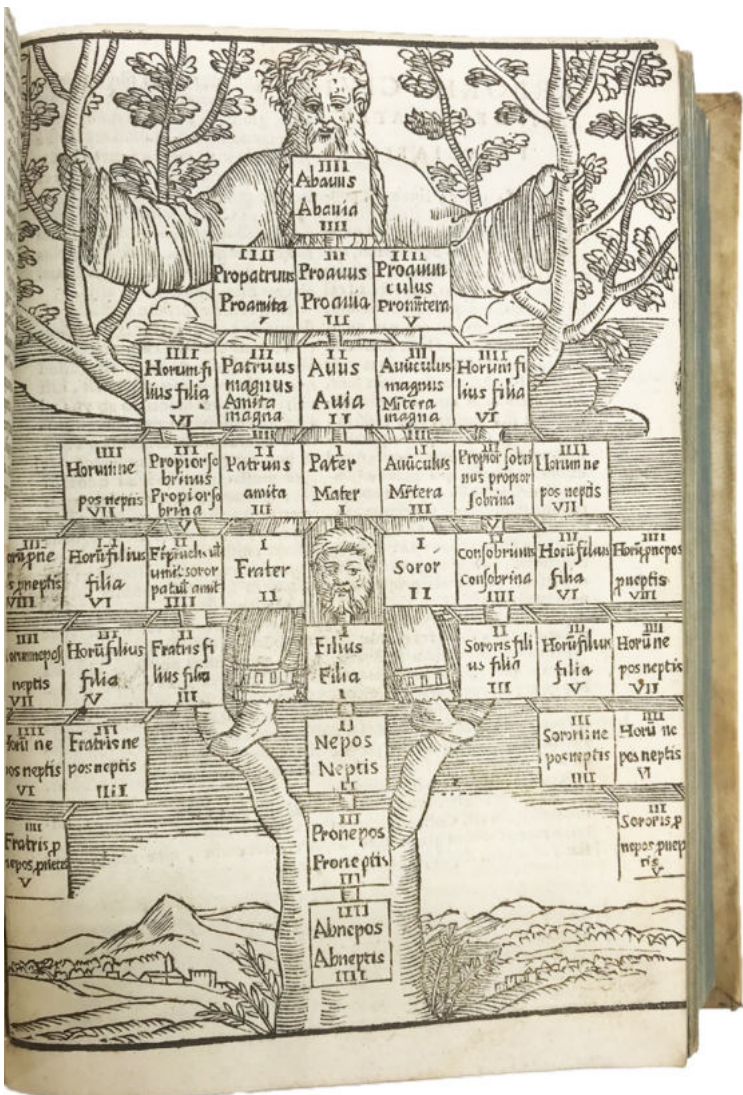 IIII
Abauus
Abauia
IIII
IIII
Propatruus
Proamita
V
III
Proauus
Proauia
III
IIII
Proauun
culus
Prom̄tera
V
IIII
Horum fi
lius filia
VI
III
Patruus
magnus
Amita
magna
IIII
II
Auus
Auia
II
III
Auūculus
magnus
Mr̄tera
magna
IIII
IIII
Horum fi
lius filia
VI
IIII
Horum ne
pos neptis
VII
III
Propior so
brinus
Propior so
brina
V
II
Patruus
amita
III
I
Pater
Mater
I
II
Auūculus
Mr̄tera
III
III
Propior sobri
nus propior
sobrina
V
IIII
Horum ne
pos neptis
VII
IIII
pneptis
VIII
III
Horū filius
filia
VI
II
soror
IIII
I
Frater
II
I
Soror
II
II
consobrinus
consobrina
IIII
III
Horū filius
filia
VI
IIII
Horū pnepos
pneptis
VIII
IIII
neptis
VII
III
Horū filius
filia
V
II
Fratris fi
lius filia
III
I
Filius
Filia
I
II
Sororis fili
us filia
III
III
Horū filius
filia
V
IIII
Horū ne
pos neptis
VII
IIII
Horū ne
pos neptis
VI
III
Fratris ne
pos neptis
IIII
II
Nepos
Neptis
II
III
Sororis ne
pos neptis
IIII
IIII
Horū ne
pos neptis
VI
IIII
Fratris p
nepos pneptis
V
III
Pronepos
Proneptis
III
IIII
Sororis p
nepos pnep
tis
V
IIII
Abnepos
Abneptis
IIII